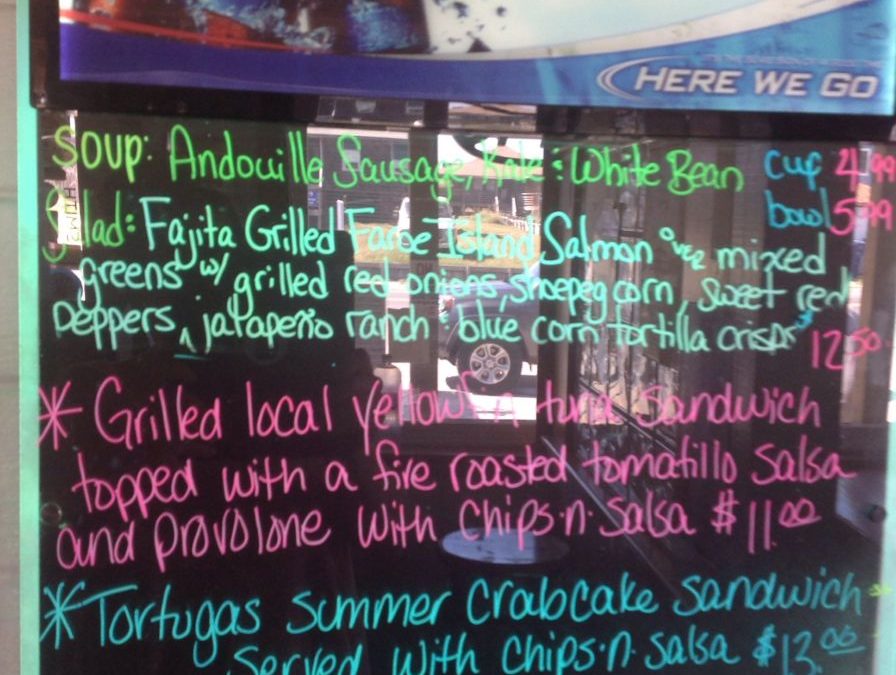 HERE WE GO
Soup: Andouille Sausage, Kale & White Bean cup 4.99
bowl 5.99
Salad: Fajita Grilled Faroe Island Salmon over mixed
greens w/ grilled red onions, shoepeg corn, sweet red
peppers, jalapeño ranch & blue corn tortilla crisps
12.50
* Grilled local yellowfin tuna sandwich
topped with a fire roasted tomatillo salsa
and provolone with chips·n·salsa $11.00
* Tortugas summer crabcake sandwich
served with chips·n·salsa $13.00